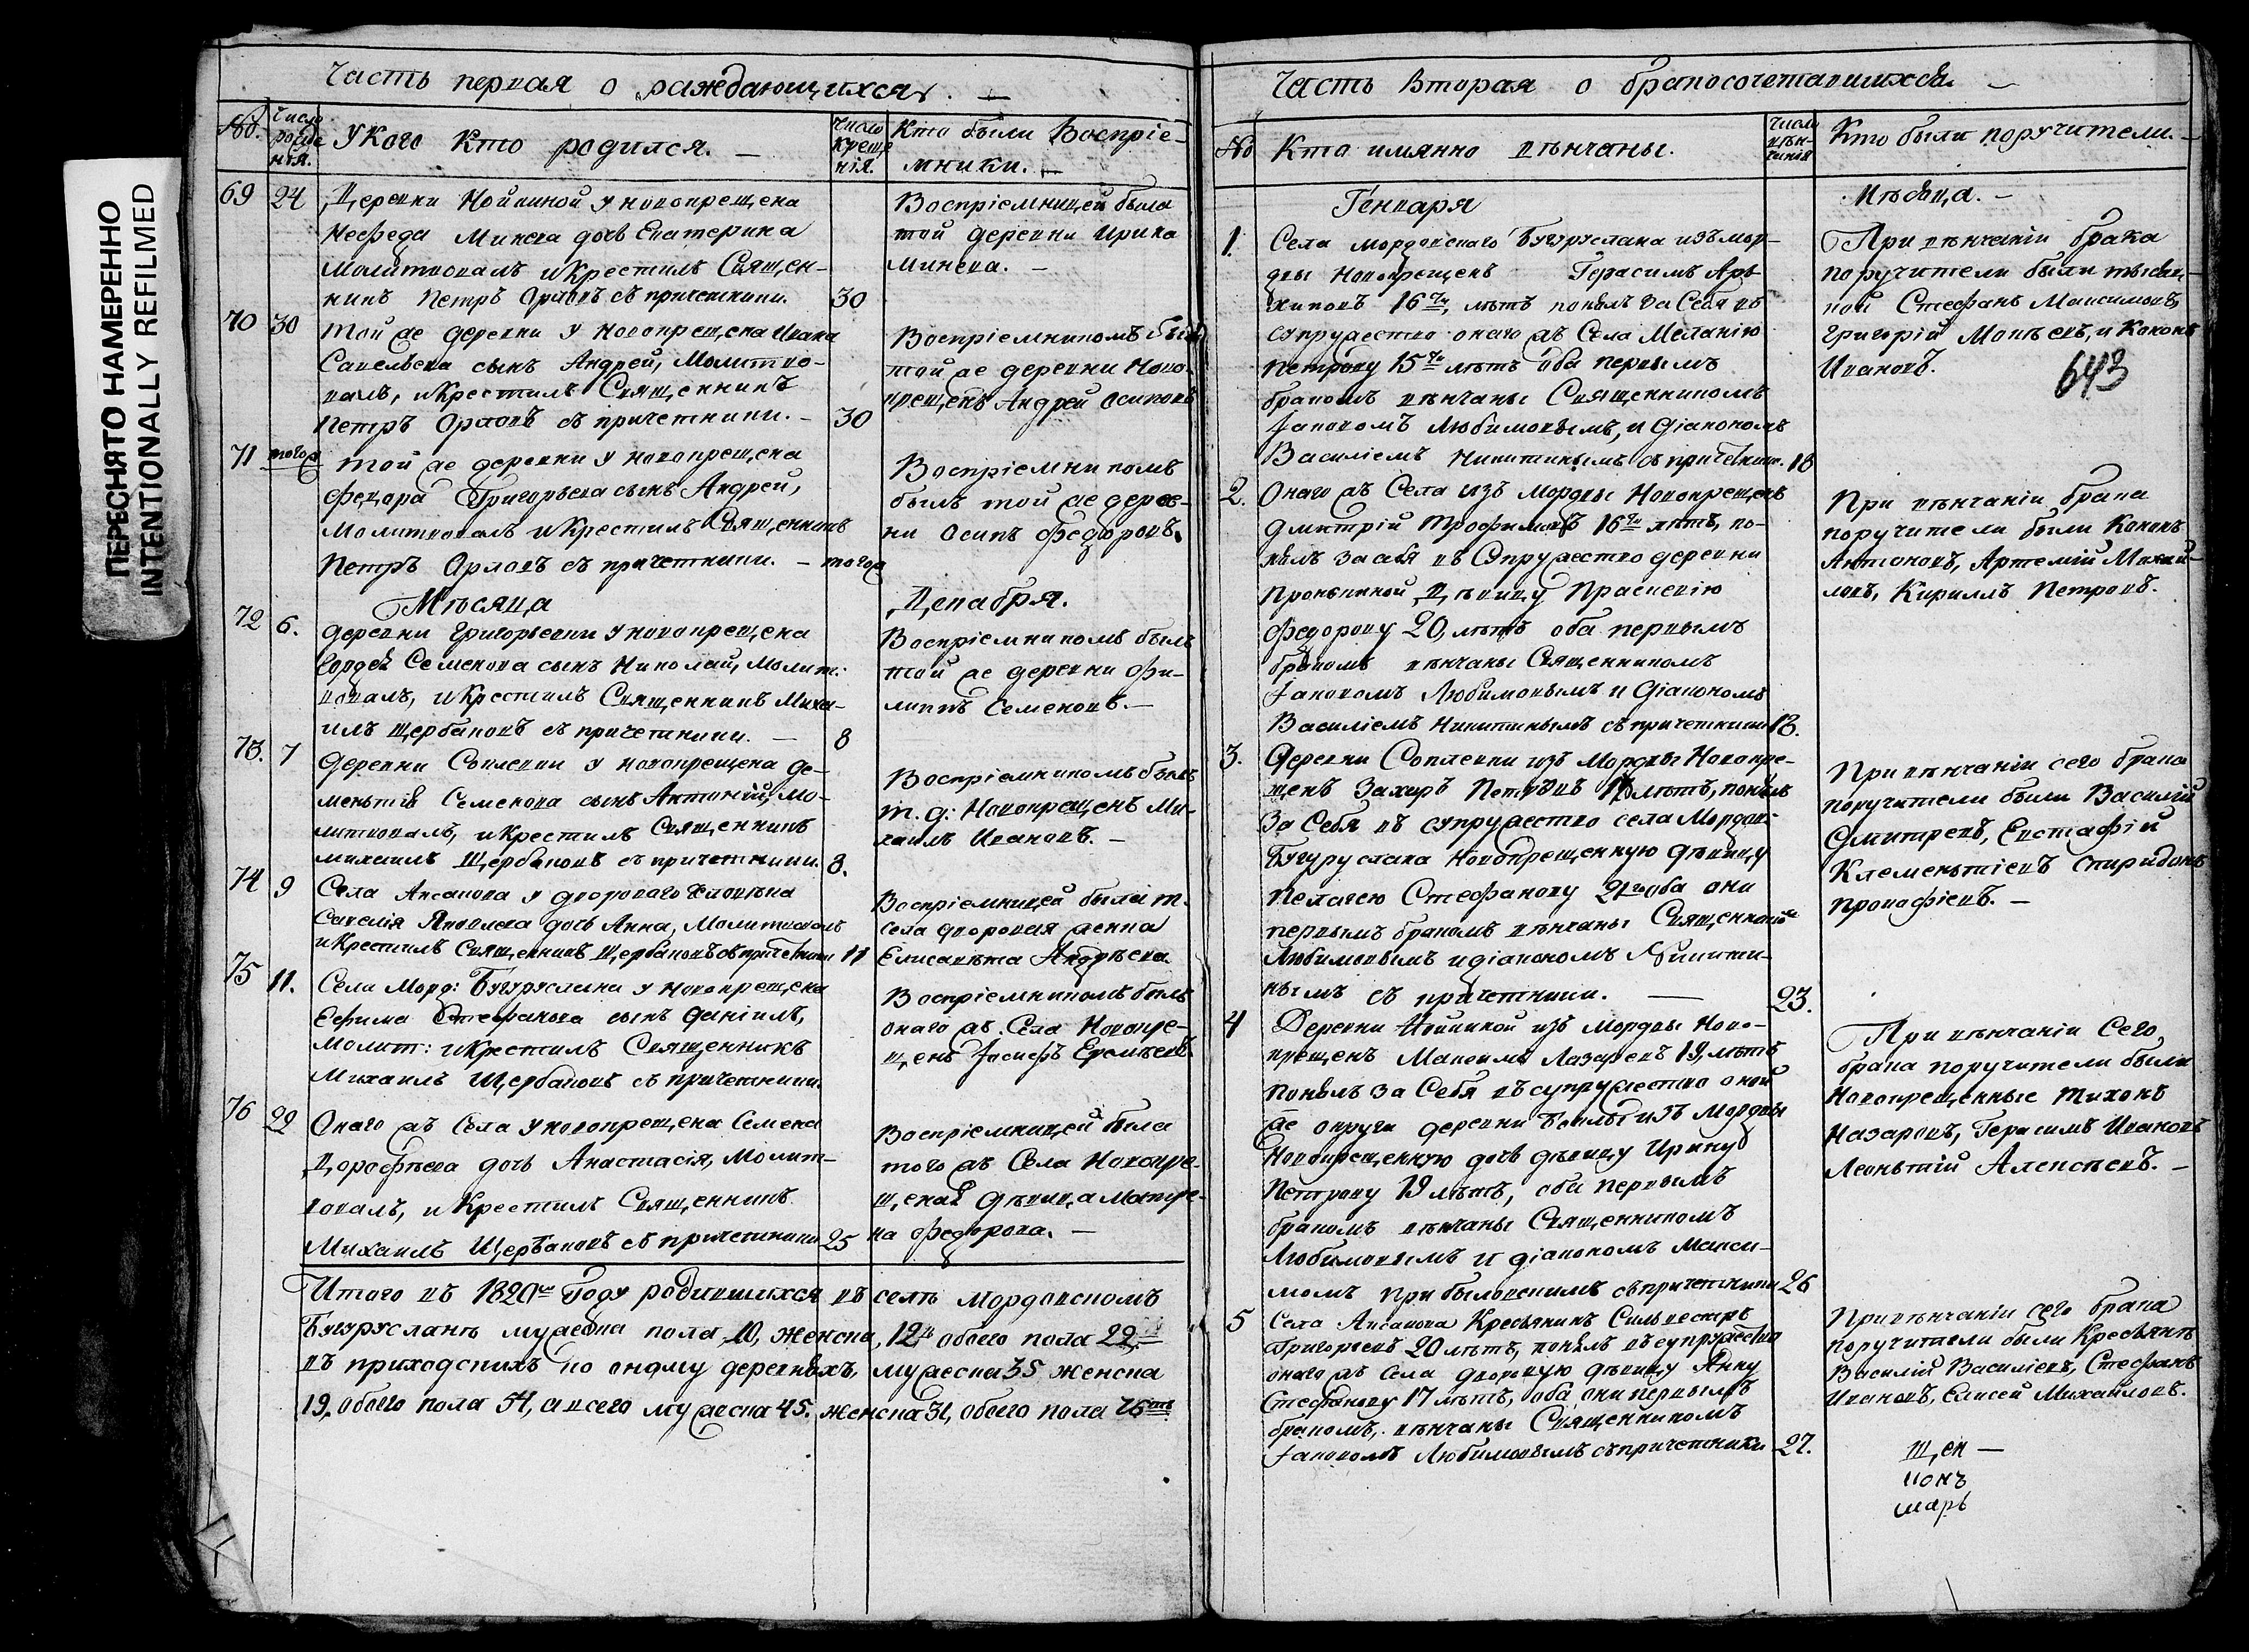 ПЕРЕСНЯТО НАМЕРЕННО
INTENTIONALLY REFILMED
Часть первая о раждающихся. —
№. Число рожде нія. У Кого Кто родился. — Число креще нія. Кто были Воспріе-
мники. —
69 24 Деревни Нойкиной у новокрещена
Нефеда Минева дочь Екатерина
Молитвовалъ и Крестилъ Священ-
никъ Петръ Орловъ съ причетники. 30
Воспріемницей была
той деревни Ирина
Минева. —
70 30 Той же деревни у новокрещена Ивана
Савельева сынъ Андрей, Молитво-
валъ, и Крестилъ Священникъ
Петръ Орловъ съ причетники. — 30
Воспріемникомъ былъ
той же деревни Ново-
крещенъ Андрей Осиповъ
71 тогож Той же деревни у новокрещена
Федора Григорьева сынъ Андрей,
Молитвовалъ и Крестилъ Священникъ
Петръ Орловъ съ причетники. — тогож
Воспріемникомъ
былъ той же дерев-
ни Осипъ Федоровъ.
Мѣсяца Декабря.
72 6. Деревни Григорьевки у новокрещена
Гордея Семенова сынъ Николай, Молит:
вовалъ, и Крестилъ Священникъ Миха-
илъ Щербаковъ съ причетники. — 8
Воспріемникомъ былъ
той же деревни Фи-
липпъ Семеновъ. —
73. 7 Деревни Соплевки у новокрещена Де-
ментія Семенова сынъ Антоній, Мо-
литвовалъ, и Крестилъ Священникъ
Михаилъ Щербаковъ съ причетники. 8.
Воспріемникомъ былъ
т. д: Новокрещенъ Ми-
хаилъ Ивановъ. —
74 9 Села Аксакова у двороваго человѣка
Савелія Яковлева дочь Анна, Молитвовалъ
и Крестилъ Священникъ Щербаковъ съ причетники 11
Воспріемницей была т.
села дворовая женка
Елисавѣта Андрѣева
75 11. Села Морд: Бугуруслана у новокрещена
Ефима Стефанова сынъ Даніилъ,
Молит: и Крестилъ Священникъ
Михаилъ Щербаковъ съ причетники.
Воспріемникомъ былъ
онаго жъ Села Новокре-
щенъ Іосифъ Еремѣевъ
76 22 Онаго жъ Села у новокрещена Семена
Дорофѣева дочь Анастасія, Молит-
вовалъ, и Крестилъ Священникъ
Михаилъ Щербаковъ съ причетники 25
Воспріемницей была
того жъ Села Новокре-
щеная Дѣвица Матре-
на Федорова. —
Итого въ 1820м Году родившихся въ селѣ Мордовскомъ
Бугурусланѣ мужеска пола 10, женска, 12ть обоего пола 22.
въ приходскихъ по оному деревняхъ, мужеска 35 женска
19. обоего пола 54, а всего мужеска 45. женска 31, обоего пола 76ть
Часть Вторая о бракосочетавшихся —
№ Кто имянно вѣнчаны. Число вѣн-чанія Кто были поручители. —
Генваря Мѣсяца. —
1. Села Мордовскаго Бугуруслана изъ мор-
двы Новокрещенъ Герасимъ Ар-
хиповъ 16ти, лѣтъ понялъ за Себя въ
супружество онаго жъ Села Меланію
Петрову 15ти лѣтъ оба первымъ
бракомъ вѣнчаны Священникомъ
Іаковомъ Любимовымъ, и Діакономъ
Василіемъ Никитинымъ съ причетник. 18
При вѣнчаніи брака
поручители были тысяц-
кой Стефанъ Максимовъ,
Григорій Мокѣевъ, и Кононъ
Ивановъ.
643
2. Онаго жъ Села изъ Мордвы Новокрещенъ
Дмитрій Трофимовъ 16ти лѣтъ, по-
нялъ за себя въ Супружество деревни
Пронькиной Дѣвицу Прасковію
Федорову 20, лѣтъ оба первымъ
бракомъ вѣнчаны Священникомъ
Іаковомъ Любимовымъ и Діакономъ
Василіемъ Никитинымъ съ причетники 18.
При вѣнчаніи брака
поручители были Кононъ
Антоновъ, Артемій Михай-
ловъ, Кириллъ Петровъ.
3. Деревни Соплевки изъ Мордвы Новокре-
щенъ Захаръ Петровъ лѣтъ, понялъ
За Себя въ супружество села Мордов:
Бугуруслана Новокрещенную дѣвицу
Пелагею Стефанову оба они
первымъ бракомъ вѣнчаны Священником
Любимовымъ и діакономъ Никити-
нымъ съ причетники. — 23.
При вѣнчаніи сего брака
поручители были Василій
Дмитревъ, Евстафій
Клементіевъ Спиридонъ
Прокофіевъ. —
4 Деревни Нойкиной изъ Мордвы Ново-
крещенъ Максимъ Лазаревъ 19, лѣтъ
понялъ за Себя въ супружество оной
же округи деревни изъ Мордвы
Новокрещенную дочь дѣвицу Ирину
Петрову 19 лѣтъ, оба первымъ
бракомъ вѣнчаны Священникомъ
Любимовымъ и діакономъ Макси-
момъ Прибыловскимъ съ причетники 26
При вѣнчаніи Сего,
брака поручители были
Новокрещенные Тихонъ
Назаровъ, Герасимъ Ивановъ
Леонтій Алексѣевъ. —
5 Села Аксакова Кресьянинъ Сильвестръ
Григорьевъ 20 лѣтъ, понялъ въ супружество
онаго жъ села дворовую дѣвицу Анну
Стефанову 17 лѣтъ, оба они первымъ
бракомъ, вѣнчаны Священникомъ
Іаковомъ Любимовымъ съ причетники 27.
При вѣнчаніи сего брака
поручители были Кресьянѣ
Василій Василіевъ, Стефанъ
Ивановъ, Елисей Михайловъ.
щен —